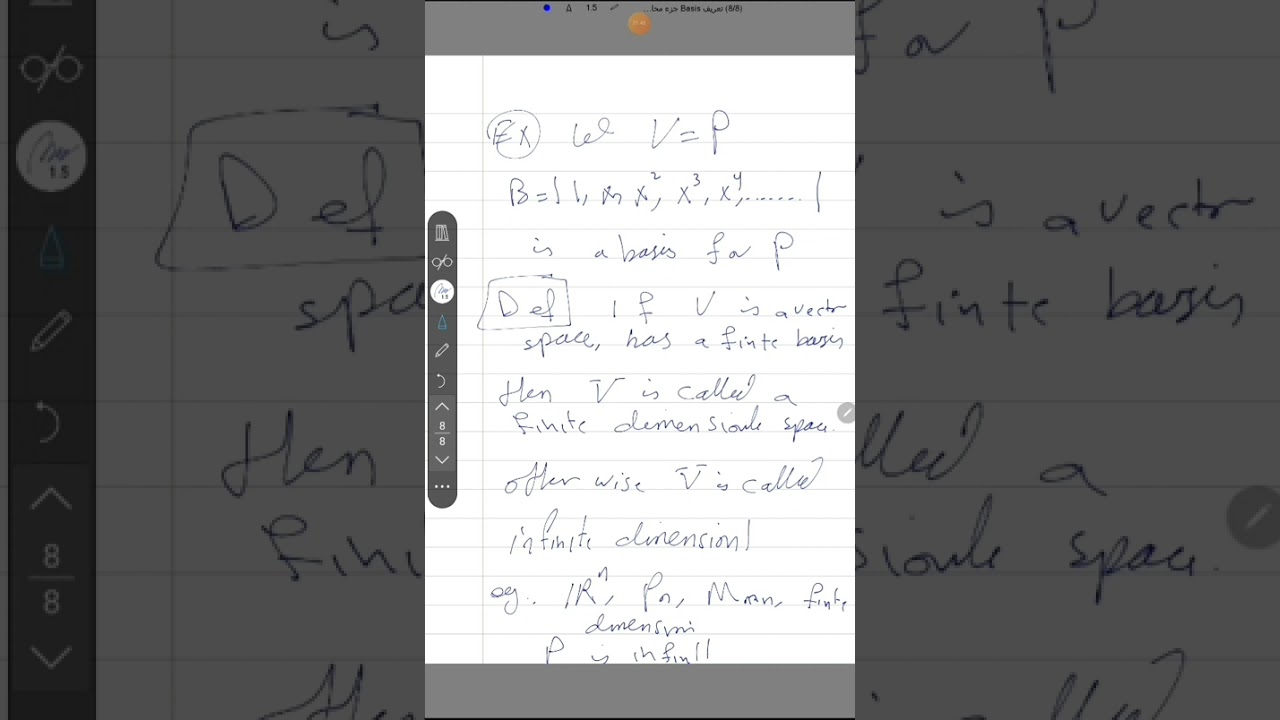 (8/8) تعريف Basis جزء محا...
1.5
Ex Let V = P
B = { 1, x, x², x³, x⁴, ....... }
is a basis for P
Def If V is a vector
space, has a finite basis
then V is called a
finite dimensionle space.
otherwise V is called
infinite dimensionl
eg. ℝⁿ, Pn, Mmxn, finite
dimension
P is infinit
8
8